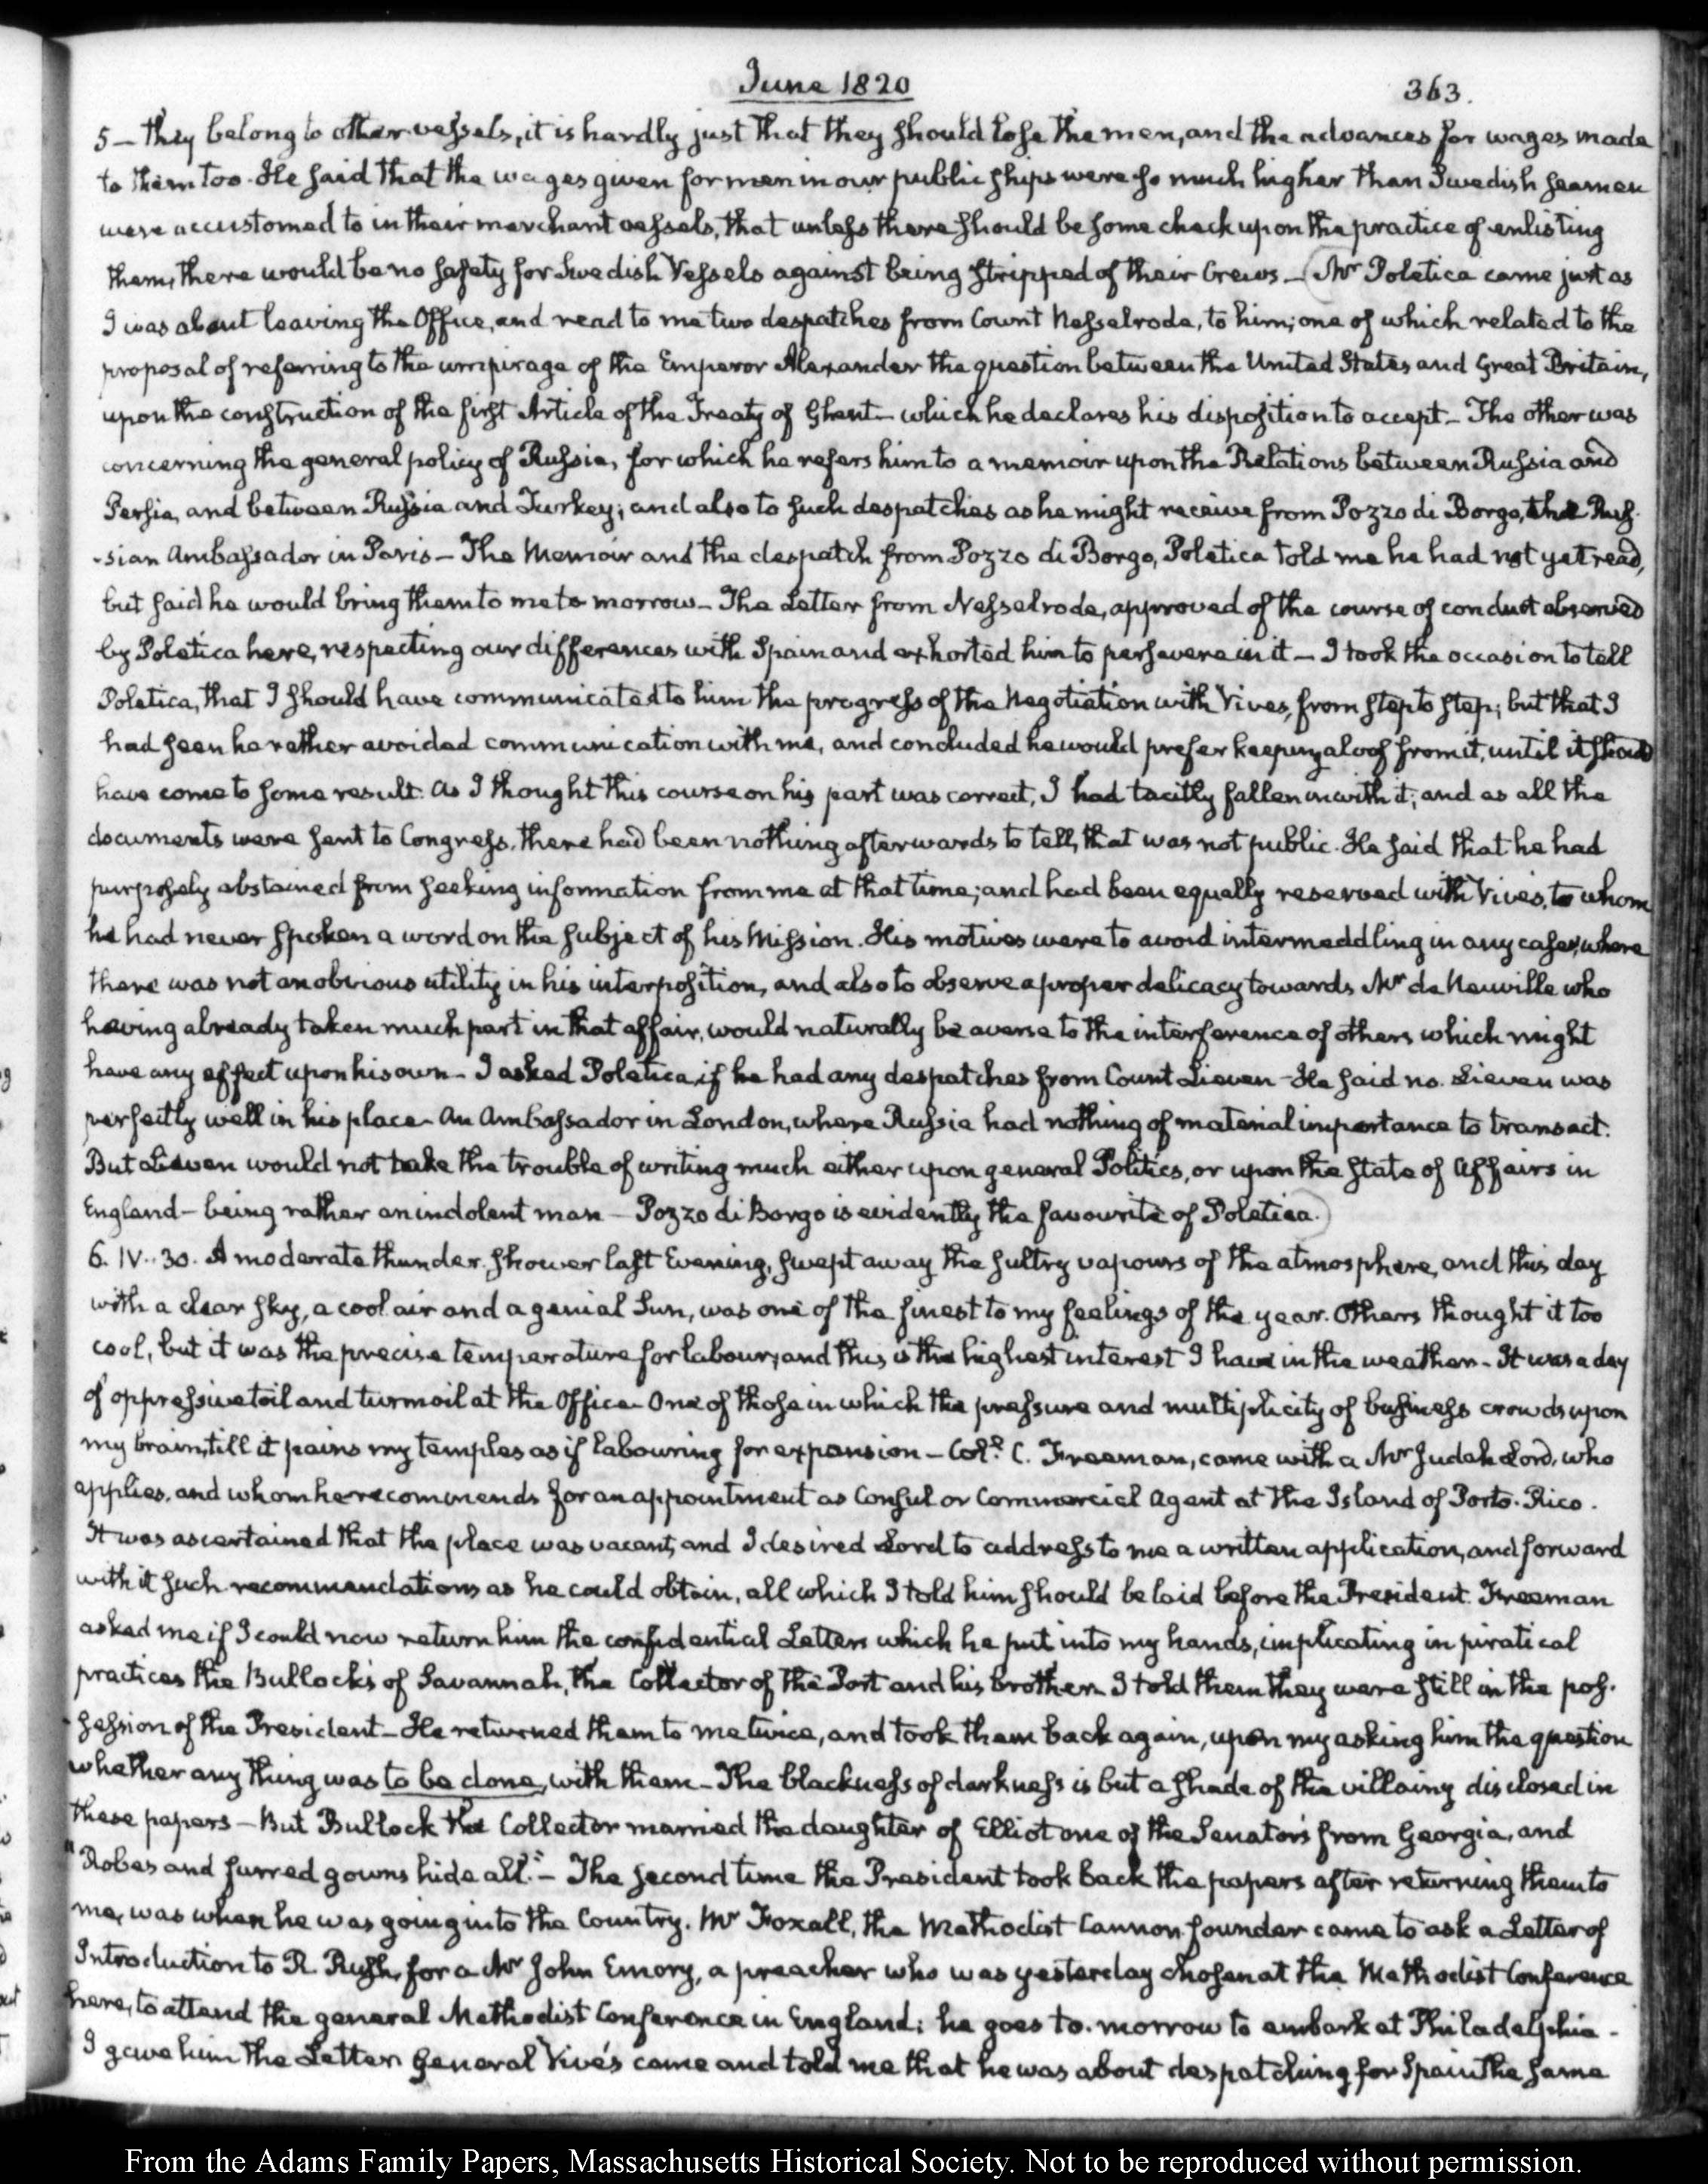 June 1820
363.
5 — they belong to other vessels, it is hardly just that they should lose the men, and the advances for wages made
to them too. He said that the wages given for men in our public ships were so much higher than Swedish seamen
were accustomed to in their merchant vessels, that unless there should be some check upon the practice of enlisting
them, there would be no safety for Swedish Vessels against being stripped of their Crews — (Mr Poletica came just as
I was about leaving the Office, and read to me two despatches from Count Nesselrode, to him; one of which related to the
proposal of referring to the umpirage of the Emperor Alexander the question between the United States and Great Britain,
upon the construction of the first Article of the Treaty of Ghent — which he declares his disposition to accept — The other was
concerning the general policy of Russia, for which he refers him to a memoir upon the Relations between Russia and
Persia, and between Russia and Turkey; and also to such despatches as he might receive from Pozzo di Borgo, the Rus-
-sian Ambassador in Paris — The Memoir and the despatch from Pozzo di Borgo, Poletica told me he had not yet read,
but said he would bring them to me to morrow — The Letter from Nesselrode, approved of the course of conduct observed
by Poletica here, respecting our differences with Spain and exhorted him to persevere in it — I took the occasion to tell
Poletica, that I should have communicated to him the progress of the Negotiation with Vives, from step to step; but that I
had seen he rather avoided communication with me, and concluded he would prefer keeping aloof from it, until it should
have come to some result. As I thought this course on his part was correct, I had tacitly fallen in with it; and as all the
documents were sent to Congress, there had been nothing afterwards to tell, that was not public. He said that he had
purposely abstained from seeking information from me at that time; and had been equally reserved with Vives, to whom
he had never spoken a word on the subject of his Mission. His motives were to avoid intermeddling in any case, where
there was not an obvious utility in his interposition, and also to observe a proper delicacy towards Mr de Neuville who
having already taken much part in that affair, would naturally be averse to the interference of others which might
have any effect upon his own — I asked Poletica if he had any despatches from Count Lieven — He said no. Lieven was
perfectly well in his place — An Ambassador in London, where Russia had nothing of material importance to transact.
But Lieven would not take the trouble of writing much either upon general Politics, or upon the state of affairs in
England — being rather an indolent man — Pozzo di Borgo is evidently the favourite of Poletica.)
6. IV..30. A moderate thunder shower last Evening, swept away the sultry vapours of the atmosphere, and this day
with a clear sky, a cool air and a genial Sun, was one of the finest to my feelings of the year. Others thought it too
cool, but it was the precise temperature for labour, and this is the highest interest I have in the weather — It was a day
of oppressive toil and turmoil at the Office — One of those in which the pressure and multiplicity of business crowds upon
my brain, till it pains my temples as if labouring for expansion — Coll. C. Freeman, came with a Mr Judah Lord, who
applies, and whom he recommends for an appointment as Consul or Commercial Agent at the Island of Porto-Rico.
It was ascertained that the place was vacant, and I desired Lord to address to me a written application, and forward
with it such recommendations as he could obtain, all which I told him should be laid before the President. Freeman
asked me if I could now return him the confidential Letters which he put into my hands, implicating in piratical
practices the Bullock's of Savannah, the Collector of the Port and his brother. I told them they were still in the pos-
-session of the President — He returned them to me twice, and took them back again, upon my asking him the question
whether any thing was to be done, with them — The blackness of darkness is but a shade of the villainy disclosed in
these papers — But Bullock the Collector married the daughter of Elliot one of the Senators from Georgia, and
"Robes and furred gowns hide all." — The second time the President took back the papers after returning them to
me, was when he was going into the Country. Mr Foxall, the Methodist Cannon founder came to ask a Letter of
Introduction to R. Rush, for a Mr John Emory, a preacher who was yesterday chosen at the Methodist Conference
here, to attend the general Methodist Conference in England; he goes to-morrow to embark at Philadelphia —
I gave him the Letter. General Vivés came and told me that he was about despatching for Spain the same
From the Adams Family Papers, Massachusetts Historical Society. Not to be reproduced without permission.